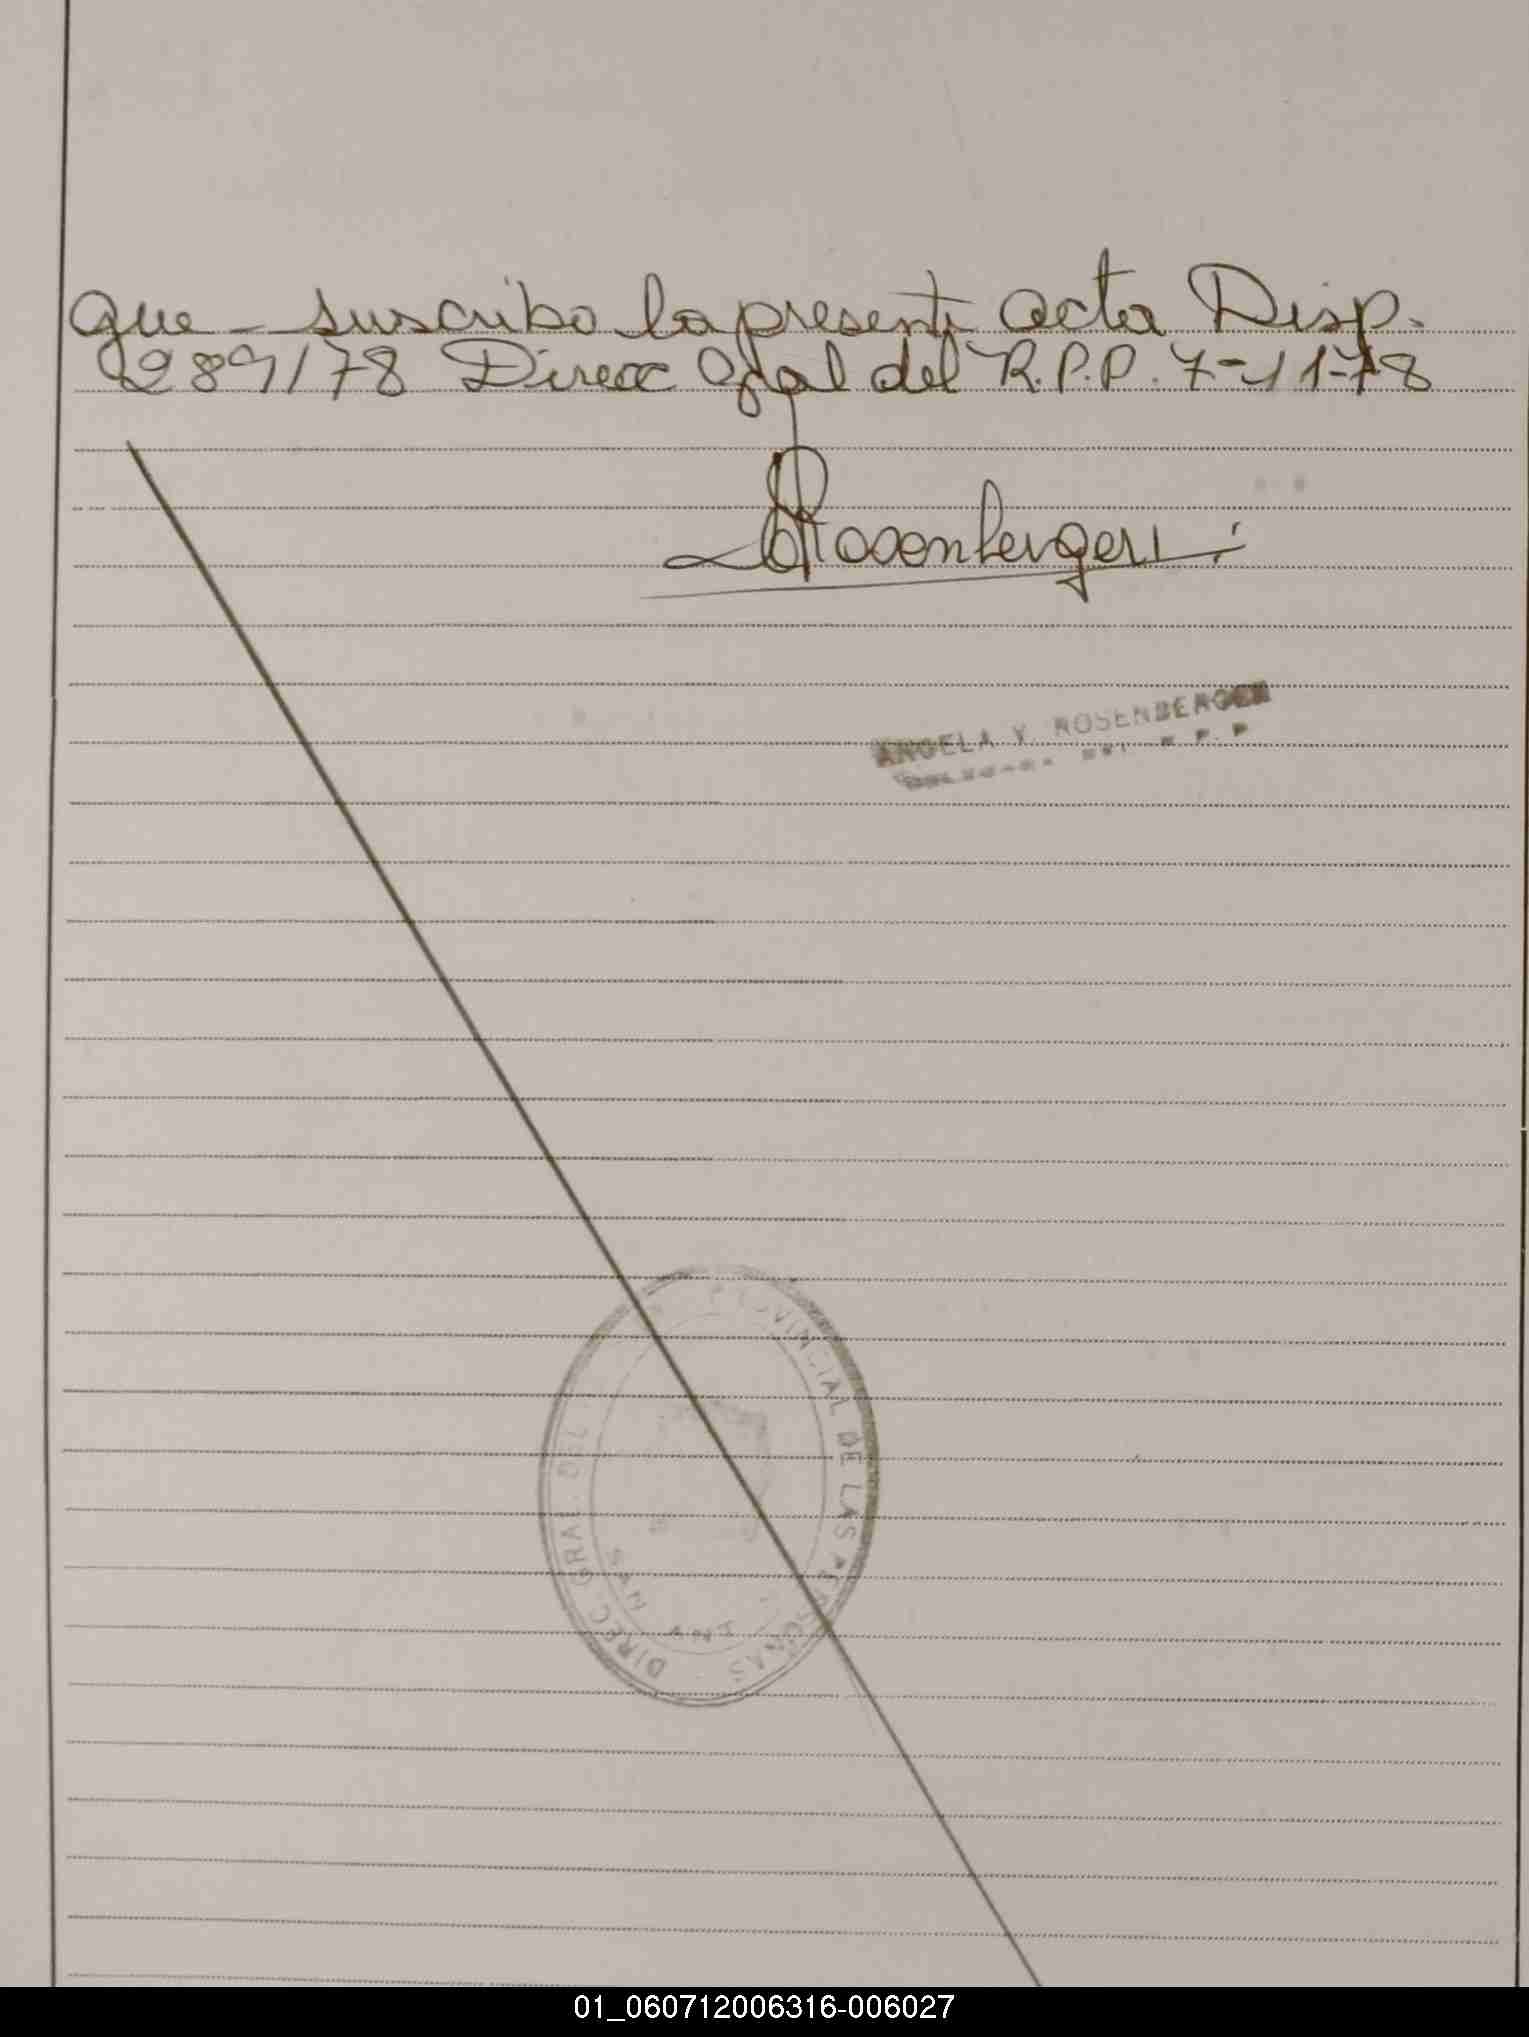 que - suscribo la presente acta Disp.
289/78 Direcc Gral del R.P.P. 7-11-78
Rosenberger
ANGELA V. ROSENBERGER
R. P. P
DIREC. GRAL. DEL PROVINCIAL DE LAS PERSONAS
SAN
01_060712006316-006027